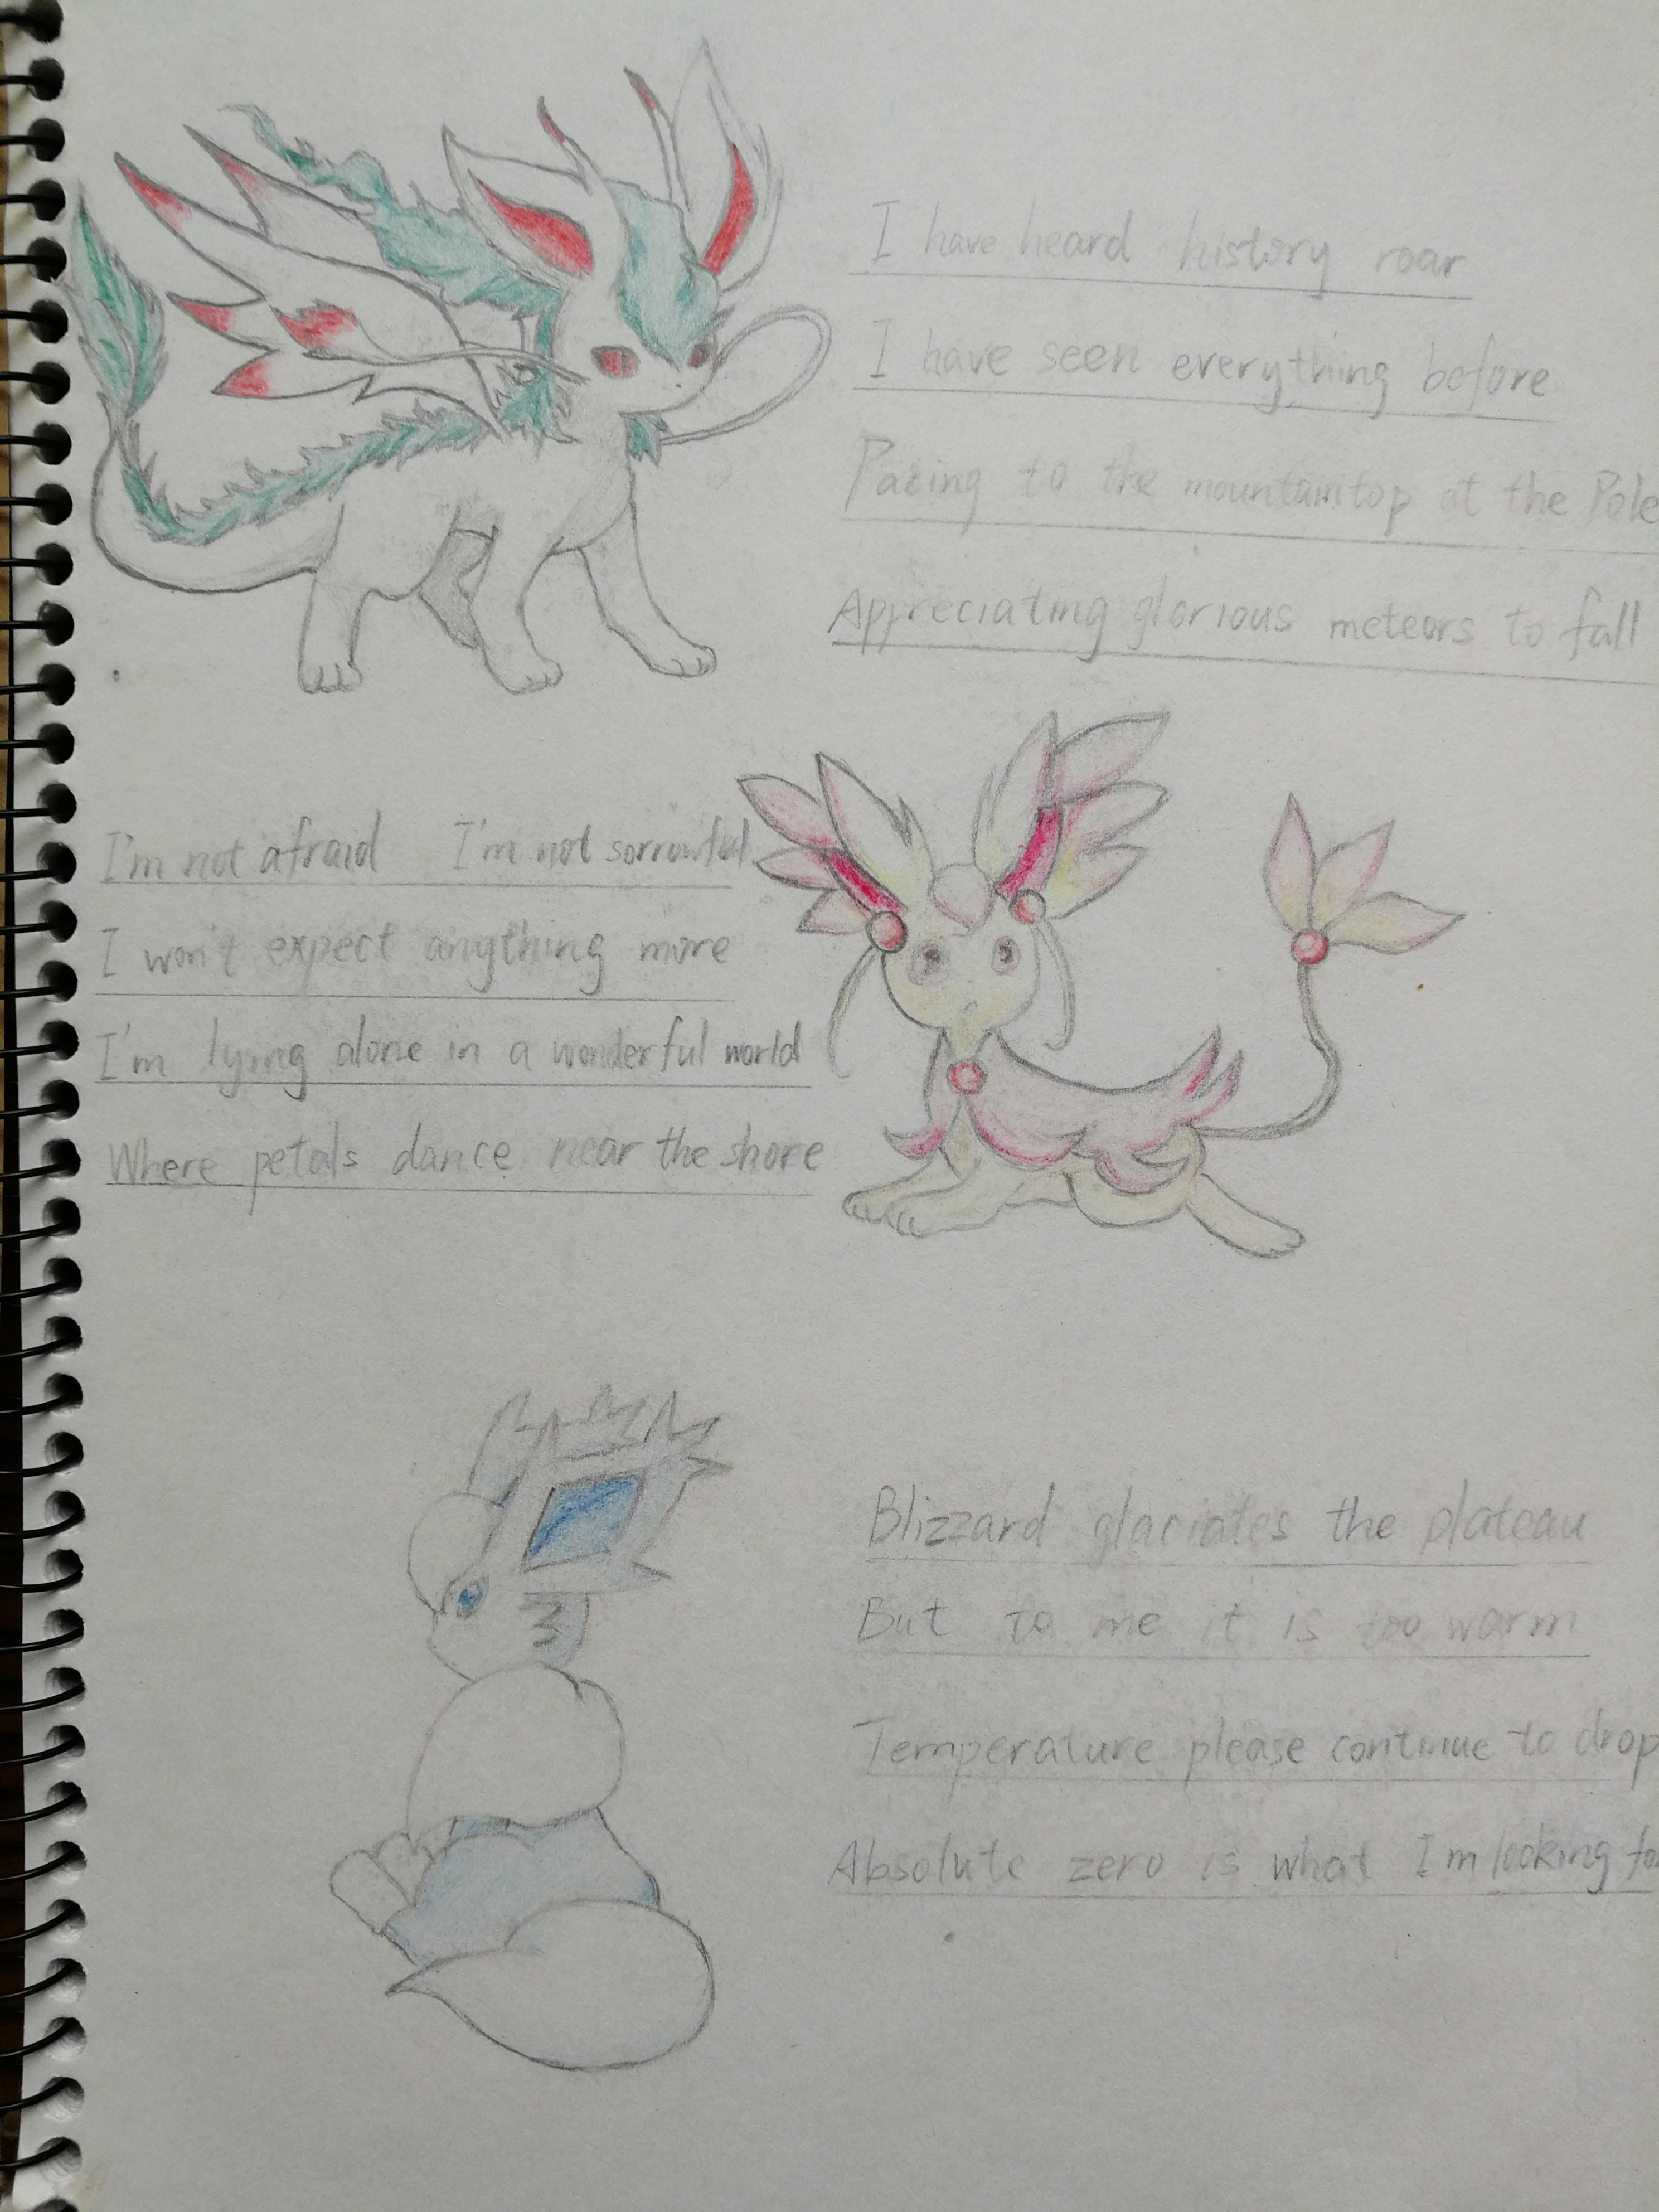 I have heard history roar
I have seen everything before
Pacing to the mountaintop at the Pole
Appreciating glorious meteors to fall
I'm not afraid I'm not sorrowful
I won't expect anything more
I'm lying alone in a wonderful world
Where petals dance near the shore
Blizzard glaciates the plateau
But to me it is too warm
Temperature please continue to drop
Absolute zero is what I'm looking for